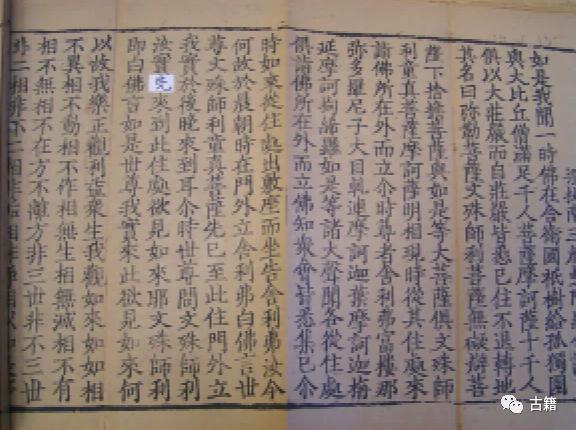 如是我聞一時佛在舍衛國祇樹給孤獨園
與大比丘僧滿足千人菩薩摩訶薩十千人
俱以大莊嚴而自莊嚴皆悉已住不退轉地
其名曰弥勒菩薩文殊師利菩薩無礙辯菩
薩不捨擔菩薩與如是等大菩薩俱文殊師
利童真菩薩摩訶薩明相現時從其住處來
詣佛所在外而立尒時尊者舍利弗富樓那
弥多羅尼子大目揵連摩訶迦葉摩訶迦栴
延摩訶拘絺羅如是等諸大聲聞各從住處
俱詣佛所在外而立佛知衆會皆悉集已尒
時如來從住處出敷座而坐告舍利弗汝今
何故於晨朝時在門外立舍利弗白佛言世
尊文殊師利童真菩薩先已至此住門外立
我實於後晚來到耳尒時世尊問文殊師利
汝實先來到此住處欲見如來耶文殊師利
即白佛言如是世尊我實來此欲見如來何
以故我樂正觀利益衆生我觀如來如如相
不異相不動相不作相無生相無滅相不有
相不無相不在方不離方非三世非不三世
非二相非不二相非垢相非淨相以
古籍